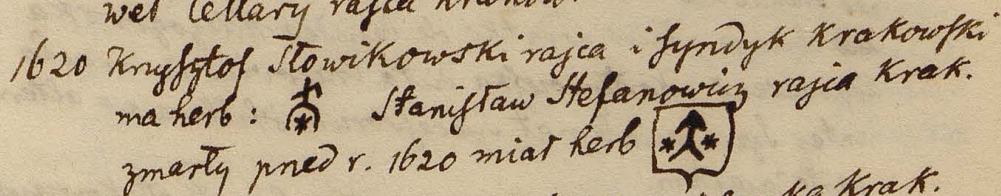 wel Cellary rajca Krakow.
1620 Krzysztof Słowikowski rajca i syndyk Krakowski
ma herb : Stanisław Stefanowicz rajca Krak.
zmarły przed r. 1620 miał herb
Krak.